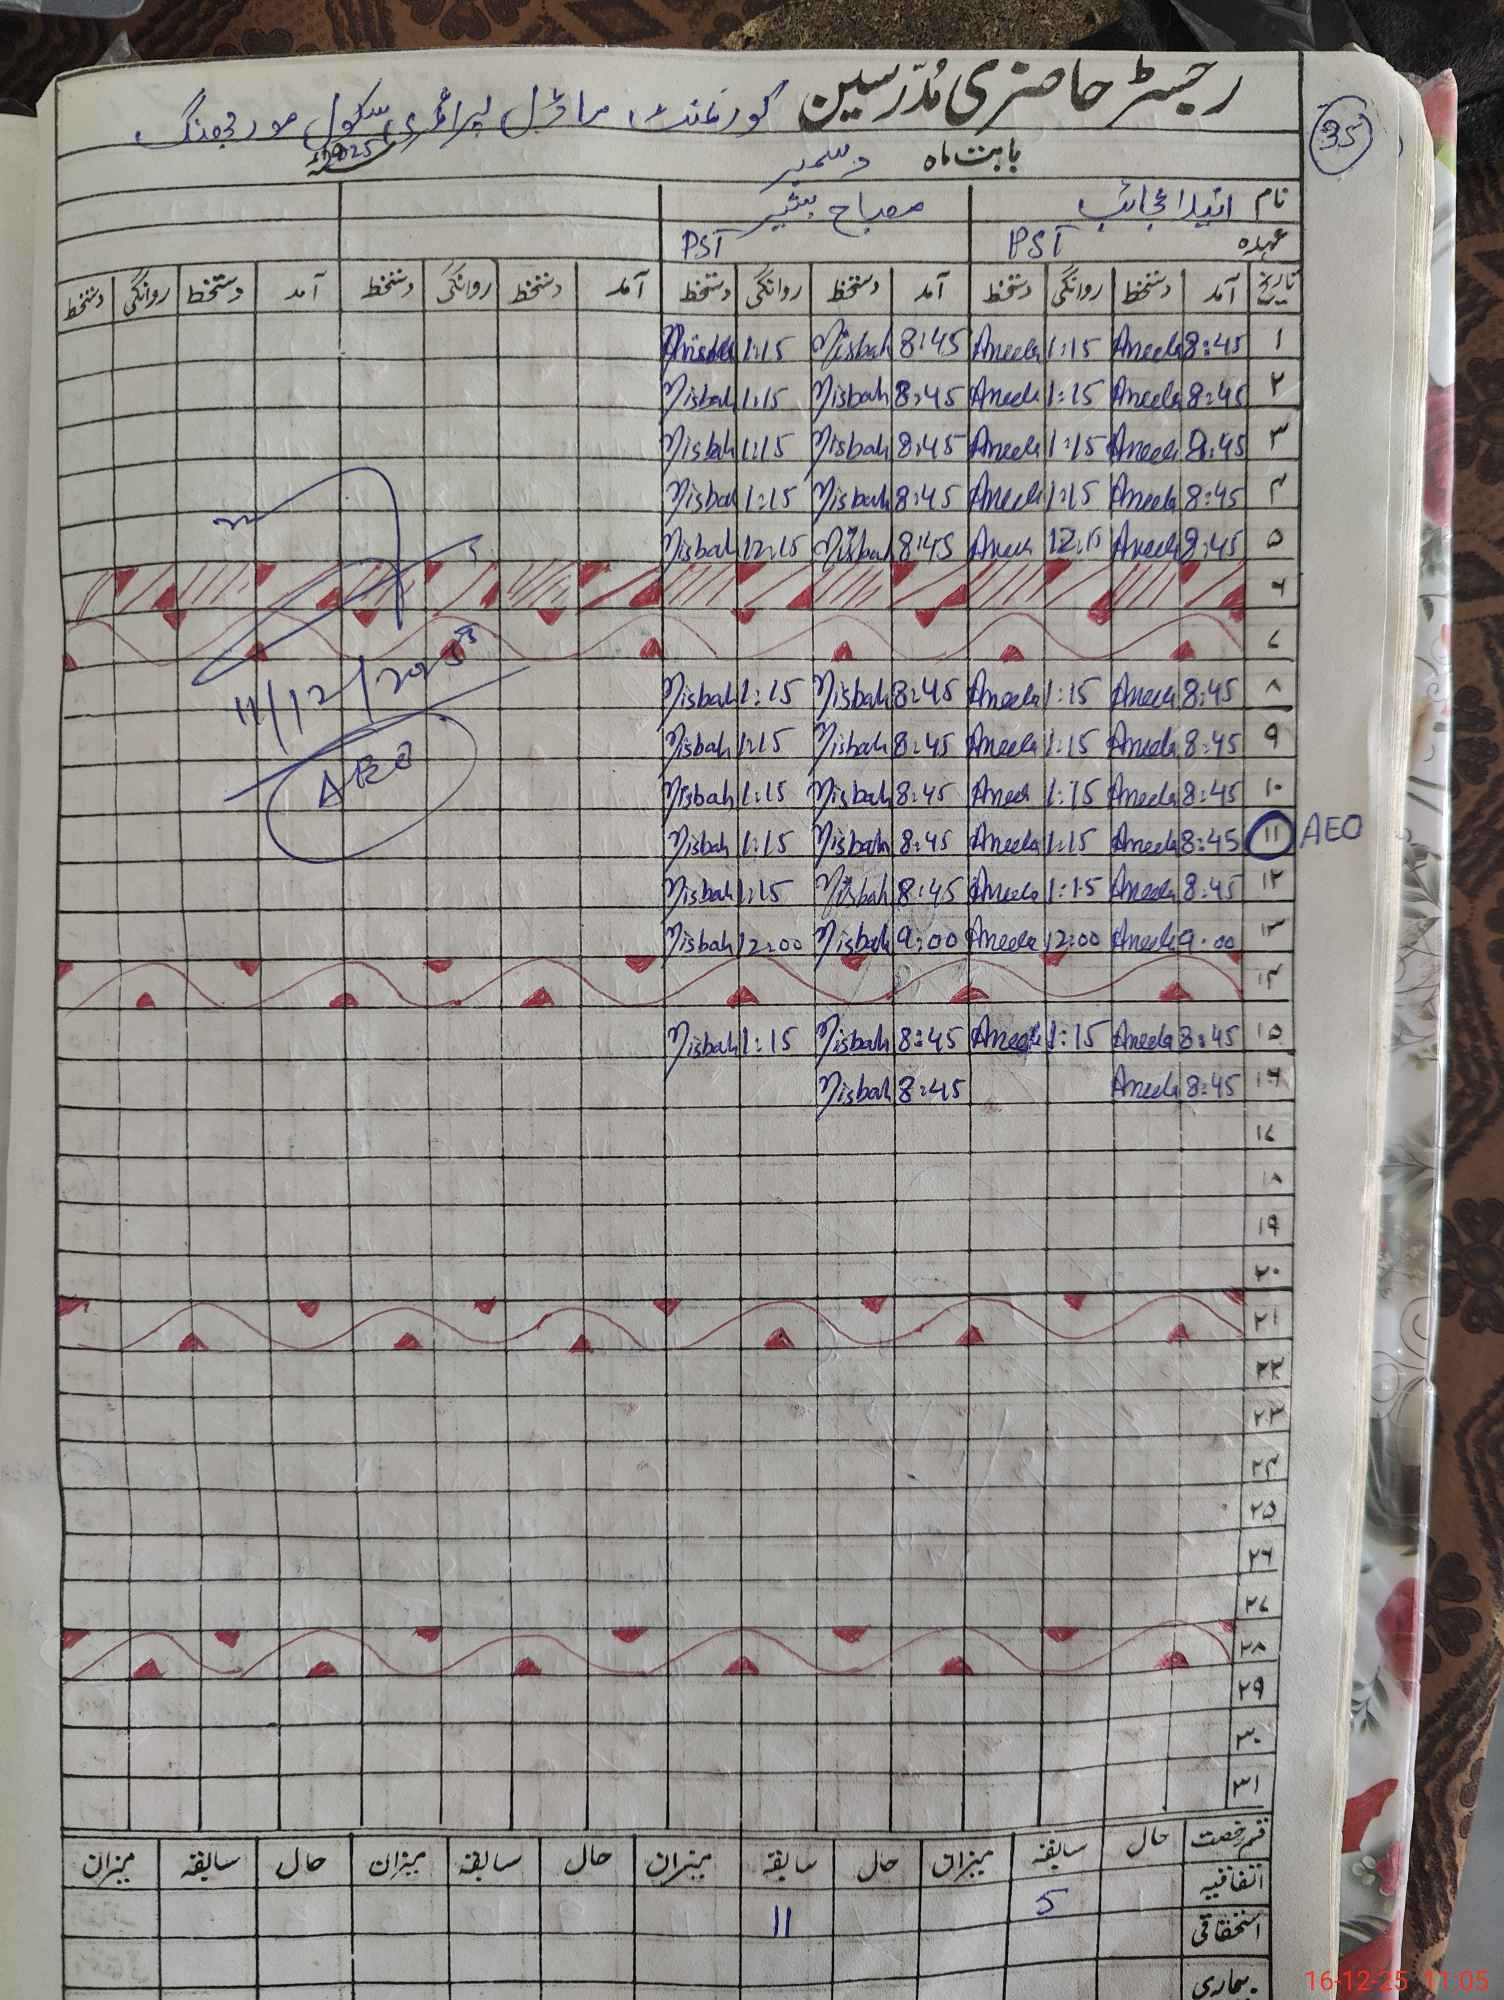 رجسٹر حاضری مُدّرسین گورنمنٹ ماڈل پرائمری سکول
35
بابت ماہ دسمبر 2025
نام انیلا عجائب مصباح بشیر
عہدہ PST PST
تاریخ آمد دستخط روانگی دستخط آمد دستخط روانگی دستخط آمد دستخط روانگی دستخط آمد دستخط روانگی دستخط
۱ 8:45 Aneela 1:15 Aneela 8:45 Misbah 1:15 Misbah
۲ 8:45 Aneela 1:15 Aneela 8:45 Misbah 1:15 Misbah
۳ 8:45 Aneela 1:15 Aneela 8:45 Misbah 1:15 Misbah
۴ 8:45 Aneela 1:15 Aneela 8:45 Misbah 1:15 Misbah
۵ 8:45 Aneela 12:15 Aneela 8:45 Misbah 12:15 Misbah
۶
۷
۸ 8:45 Aneela 1:15 Aneela 8:45 Misbah 1:15 Misbah
۹ 8:45 Aneela 1:15 Aneela 8:45 Misbah 1:15 Misbah
۱۰ 8:45 Aneela 1:15 Aneela 8:45 Misbah 1:15 Misbah
AEO ۱۱ 8:45 Aneela 1:15 Aneela 8:45 Misbah 1:15 Misbah
۱۲ 8:45 Aneela 1:15 Aneela 8:45 Misbah 1:15 Misbah
۱۳ 9:00 Aneela 12:00 Aneela 9:00 Misbah 12:00 Misbah
۱۴
۱۵ 8:45 Aneela 1:15 Aneela 8:45 Misbah 1:15 Misbah
۱۶ 8:45 Aneela 8:45 Misbah
۱۷
۱۸
۱۹
۲۰
۲۱
۲۲
۲۳
۲۴
۲۵
۲۶
۲۷
۲۸
۲۹
۳۰
۳۱
11/12/2025
AEO
قسم رخصت حال سابقہ میزان حال سابقہ میزان حال سابقہ میزان حال سابقہ میزان
اتفاقیہ 5 11
استحقاقی
بیماری
16-12-25 11:05